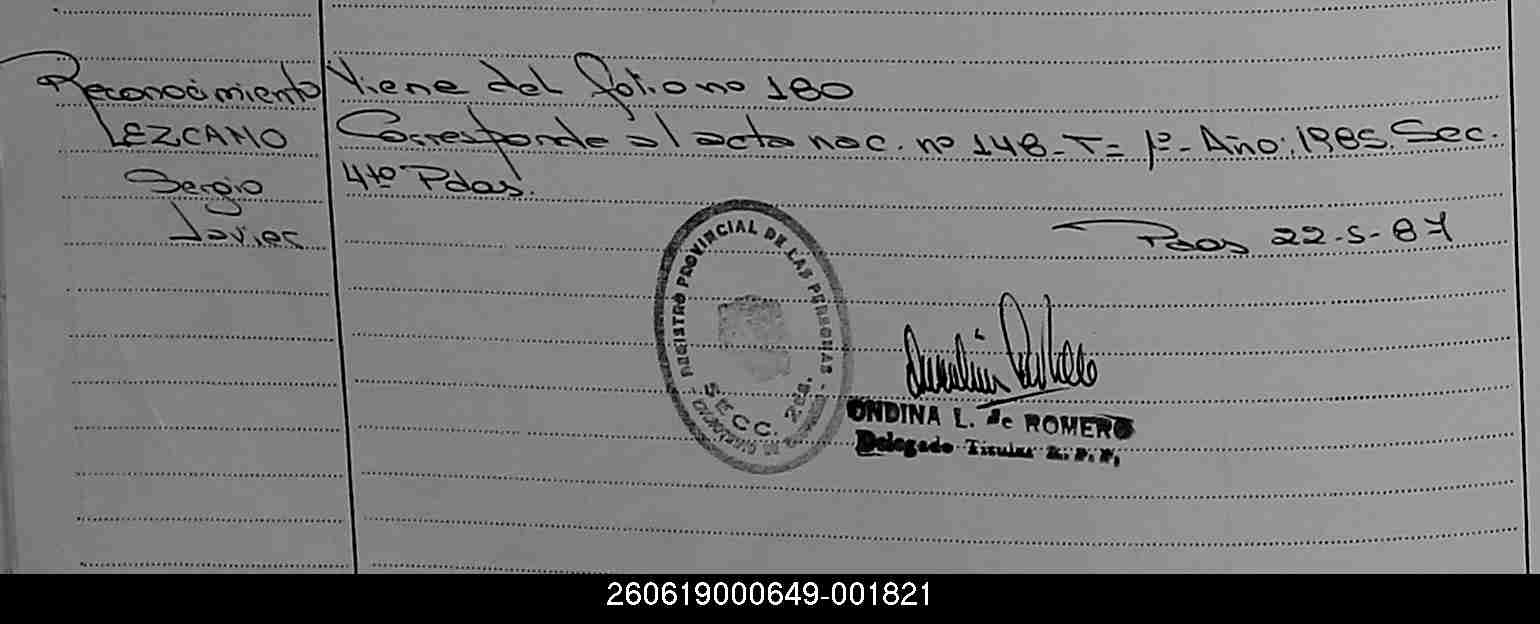 Reconocimiento Viene del folio no 180
LEZCANO Corresponde al acta nac. no 148-T= 1º- Año: 1985. Sec.
Sergio 4to Pdas.
Javier
Pdas 22-5-87
REGISTRO PROVINCIAL DE LAS PERSONAS
SECC. 2da.
ONDINA L. de ROMERO
Delegado Titular R. P. P.
260619000649-001821